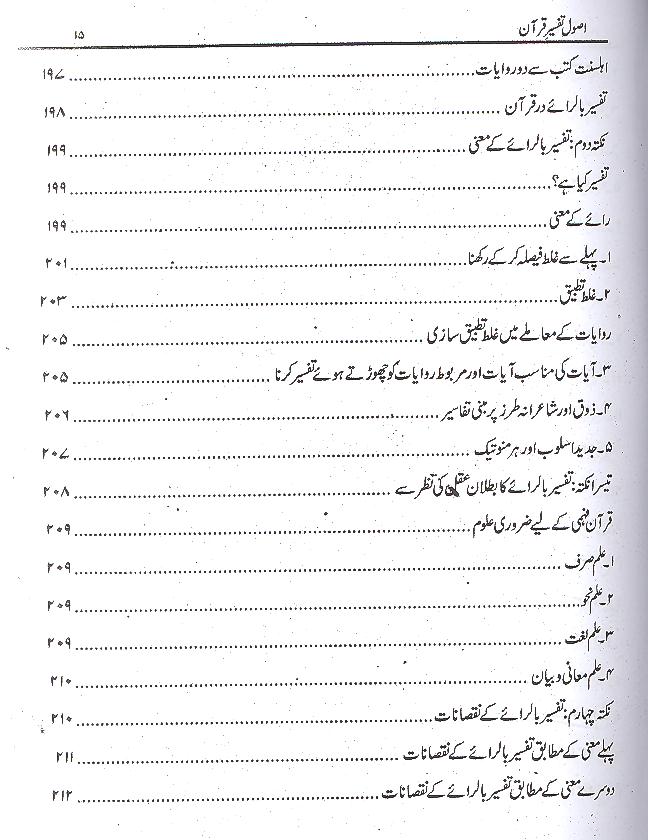 اصول تفسیر قرآن ۱۵
اہلسنت کتب سے دو روایات ۱۹۷
تفسیر بالرائے در قرآن ۱۹۸
نکتہ دوم: تفسیر بالرائے کے معنی ۱۹۹
تفسیر کیا ہے؟ ۱۹۹
رائے کے معنی ۱۹۹
۱۔ پہلے سے غلط فیصلہ کر کے رکھنا ۲۰۱
۲۔ غلط تطبیق ۲۰۳
روایات کے معاملے میں غلط تطبیق سازی ۲۰۵
۳۔ آیات کی مناسب آیات اور مربوط روایات کو چھوڑتے ہوئے تفسیر کرنا ۲۰۵
۴۔ ذوق اور شاعرانہ طرز پر مبنی تفاسیر ۲۰۶
۵۔ جدید اسلوب اور ہرمنوتیک ۲۰۷
تیسرا نکتہ: تفسیر بالرائے کا بطلان عقل کی نظر سے ۲۰۸
قرآن فہمی کے لیے ضروری علوم ۲۰۹
۱۔ علم صرف ۲۰۹
۲۔ علم نحو ۲۰۹
۳۔ علم لغت ۲۰۹
۴۔ علم معانی و بیان ۲۱۰
نکتہ چہارم: تفسیر بالرائے کے نقصانات ۲۱۰
پہلے معنی کے مطابق تفسیر بالرائے کے نقصانات ۲۱۱
دوسرے معنی کے مطابق تفسیر بالرائے کے نقصانات ۲۱۲